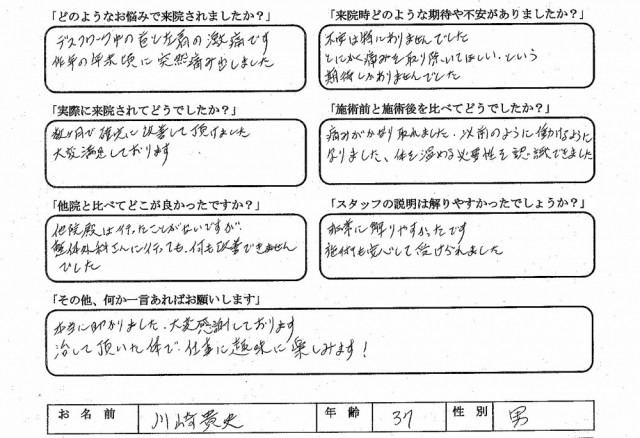 「どのようなお悩みで来院されましたか?」
デスクワーク中の首と左肩の激痛です
昨年の年末頃に突然痛み出しました
「来院時どのような期待や不安がありましたか?」
不安は特にありませんでした
とにかく痛みを取り除いてほしい、という
期待しかありませんでした
「実際に来院されてどうでしたか?」
数ヶ月で確実に改善して頂けました
大変満足しております
「施術前と施術後を比べてどうでしたか?」
痛みがかなり取れました、以前のように働けるように
なりました、体を温める必要性を認識できました
「他院と比べてどこが良かったですか?」
他院殿は行ったことがないですが、
整体外科さんに行っても、何も改善できません
でした
「スタッフの説明は解りやすかったでしょうか?」
非常に解りやすかったです
施術も安心して受けられました
「その他、何か一言あればお願いします」
本当に助かりました、大変感謝しております
治して頂いた体で、仕事に趣味に楽しみます!
お名前 川崎貴史 年齢 37 性別 男